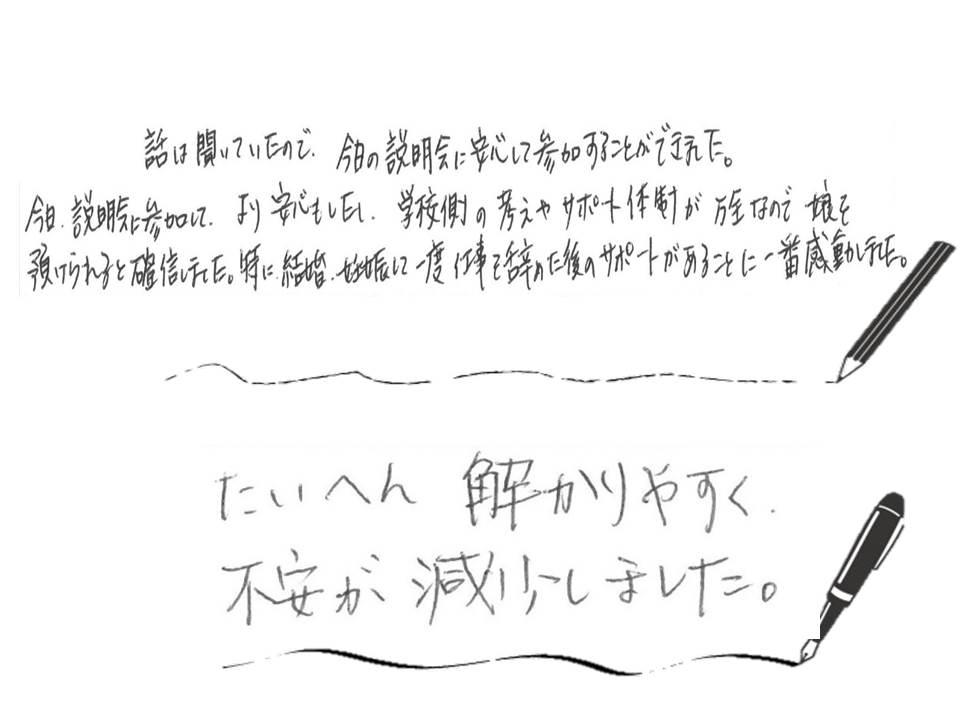 話は聞いていたので、今日の説明会に安心して参加することができました。
今日、説明会に参加して、より安心もしたし、学校側の考えやサポート体制が万全なので娘を
預けられると確信しました。特に、結婚、妊娠して一度仕事を辞めた後のサポートがあることに一番感動しました。
たいへん 解かりやすく、
不安が 減少しました。